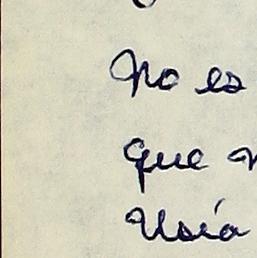 No es
que
Usía